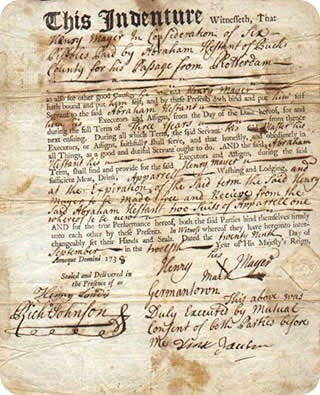 This Indenture Witnesseth, That
Henry Mayer In Consideration of Six
Pistoles Paid by Abraham Hestant of Bucks
County for his Passage from Rotterdam
as also for other good Causes he the said Henry Mayer
hath bound and put him self, and by these Presents doth bind and put him self
Servant to the said Abraham Hestant
Executors and Assigns, from the Day of the Date hereof, for and
during the full Term of Three Years from thence
next ensuing. During all which Term, the said Servant his said Master his
Executors, or Assigns, faithfully shall serve, and that honestly, and obediently in
all Things, as a good and dutiful Servant ought to do. AND the said Abraham
Hestant his Executors and Assigns, during the said
Term, shall find and provide for the said Henry Mayer
sufficient Meat, Drink, Apparrel Washing and Lodging, and
at the Expiration of the Said term the Said Henry
Mayer to be made free and Receive from the
Said Abraham Hestant two Suits of Apparrell one
whereof to be new
AND for the true Performance hereof, both the said Parties bind themselves firmly
unto each other by these Presents. In Witness whereof they have hereunto inter-
changeably set their Hands and Seals. Dated the twenty Ninth Day of
September in the twelfth Year of His Majesty's Reign,
Annoque Domini 1738
Sealed and Delivered in
the Presence of us
Henry Mayer
Mark
Rich Johnson
Germantown
This above was
Duly Executed by Mutual
Consent of both Parties before
me